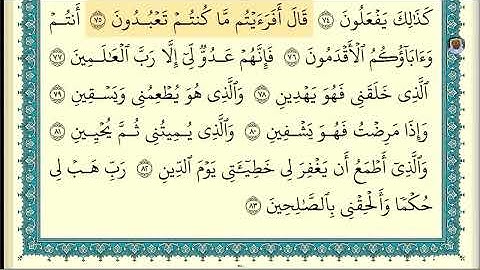 كَذَٰلِكَ يَفْعَلُونَ ٧٤ قَالَ أَفَرَءَيْتُم مَّا كُنتُمْ تَعْبُدُونَ ٧٥ أَنتُمْ
وَءَابَآؤُكُمُ ٱلْأَقْدَمُونَ ٧٦ فَإِنَّهُمْ عَدُوٌّ لِّىٓ إِلَّا رَبَّ ٱلْعَـٰلَمِينَ ٧٧
ٱلَّذِى خَلَقَنِى فَهُوَ يَهْدِينِ ٧٨ وَٱلَّذِى هُوَ يُطْعِمُنِى وَيَسْقِينِ ٧٩
وَإِذَا مَرِضْتُ فَهُوَ يَشْفِينِ ٨٠ وَٱلَّذِى يُمِيتُنِى ثُمَّ يُحْيِينِ ٨١
وَٱلَّذِىٓ أَطْمَعُ أَن يَغْفِرَ لِى خَطِيٓـَٔتِى يَوْمَ ٱلدِّينِ ٨٢ رَبِّ هَبْ لِى
حُكْمًا وَأَلْحِقْنِى بِٱلصَّـٰلِحِينَ ٨٣